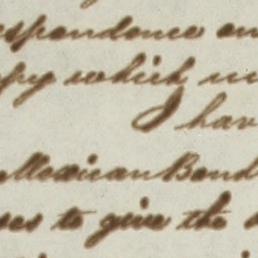 espondence
which
I hav
Mexican Bond
to give the